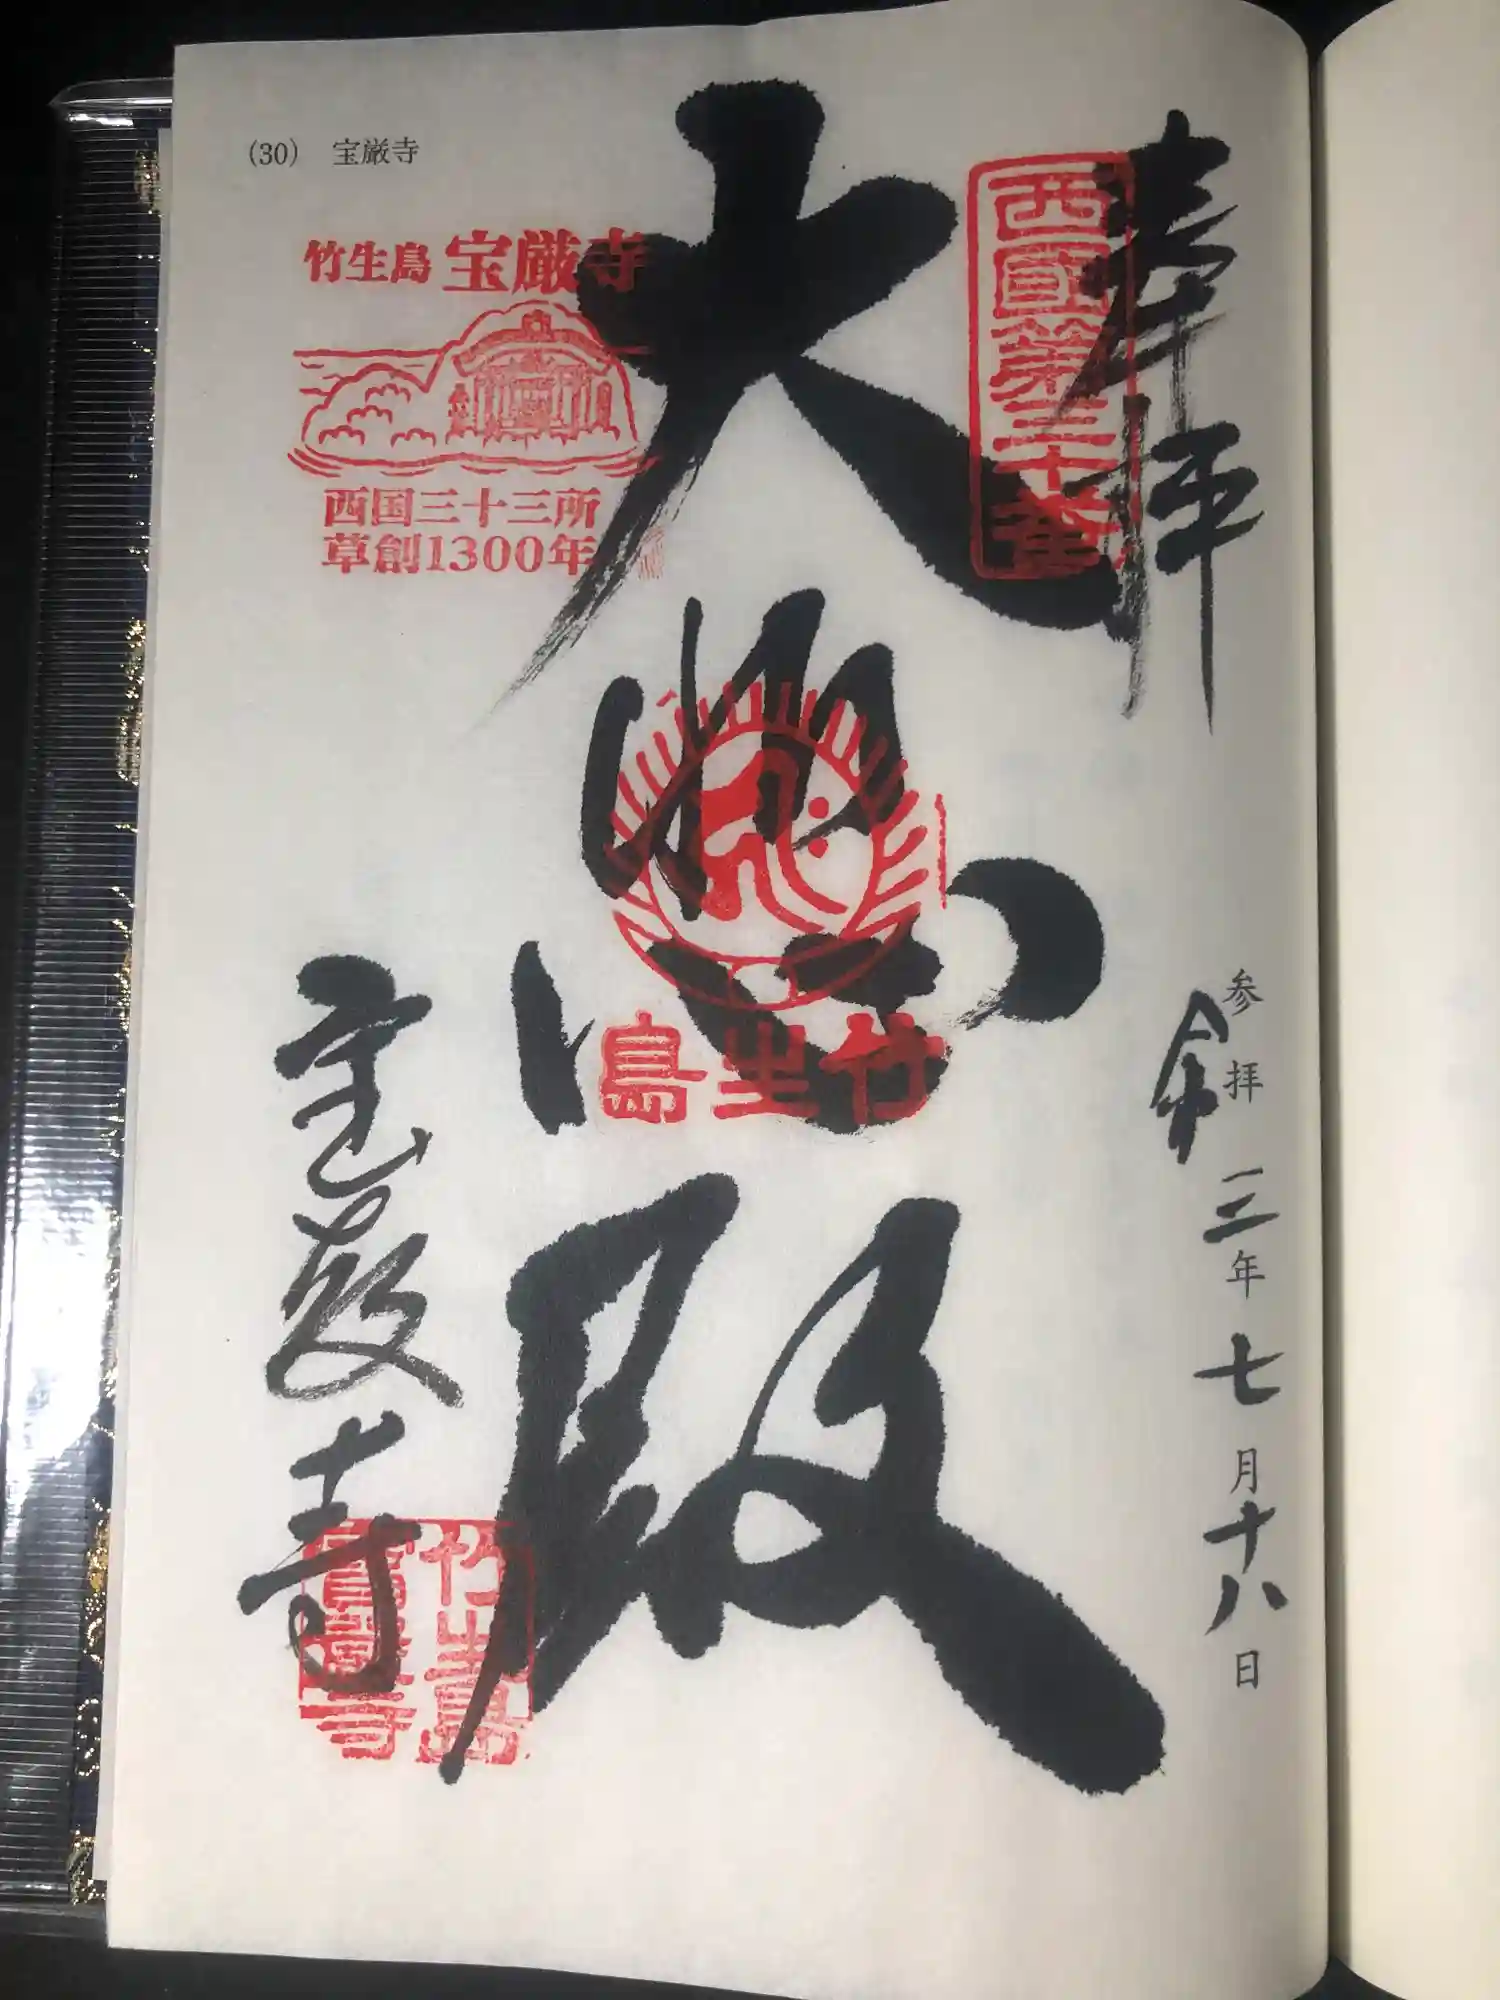 (30) 宝厳寺
奉拝
西國第三十番
参拝
令和三年七月十八日
大悲殿
竹生島
竹生島 宝厳寺
西国三十三所
草創1300年
宝厳寺
竹生島
寳厳寺